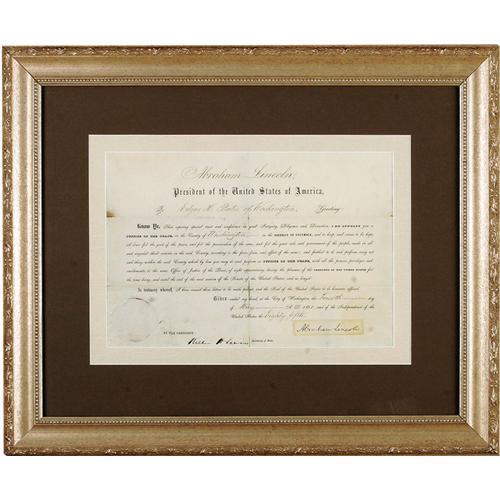 Abraham Lincoln,
President of the United States of America,
To Edgar H. Bates of Washington, Greeting
Know Ye, That reposing special trust and confidence in your Integrity, Diligence and Discretion, I DO APPOINT you a
JUSTICE OF THE PEACE, in the County of Washington in the DISTRICT OF COLUMBIA, and to keep and cause to be kept,
all laws for the good of the peace, and for the preservation of the same, and for the quiet rule and government of the people, made in all
and singular their names in the said County according to the force, form, and effect of the same; and
and being within the said County as JUSTICE OF THE PEACE, with all the powers, privileges and
emoluments to the same Office of Justice of the Peace of right appertaining, during the pleasure of the PRESIDENT OF THE UNITED STATES for
the time being, and until the end of the next session of the Senate of the United States and no longer.
In testimony whereof, I have caused these letters to be made patent and the Seal of the United States to be hereunto affixed.
Given under my hand, at the City of Washington, the Fourth day
of May A.D. 1861, and of the Independence of the
United States the Eighty fifth.
BY THE PRESIDENT
Abraham Lincoln
William H. Seward Secretary of State